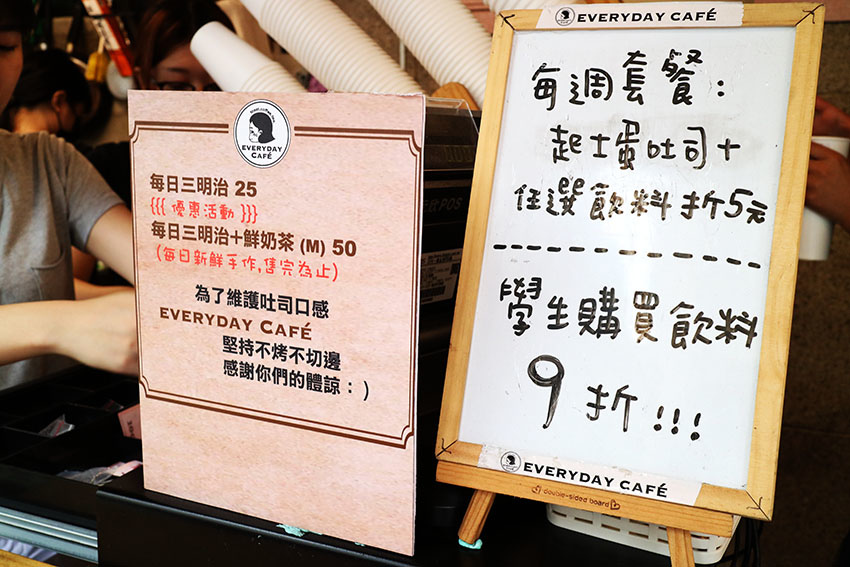 EVERYDAY
CAFÉ
每日三明治 25
{{{ 優惠活動 }}}
每日三明治+鮮奶茶 (M) 50
(每日新鮮手作,售完為止)
為了維護吐司口感
EVERYDAY CAFÉ
堅持不烤不切邊
感謝你們的體諒：)
EVERYDAY CAFÉ
每週套餐：
起士蛋吐司+
任選飲料折5元
學生購買飲料
9折!!!
EVERYDAY CAFÉ
double-sided board